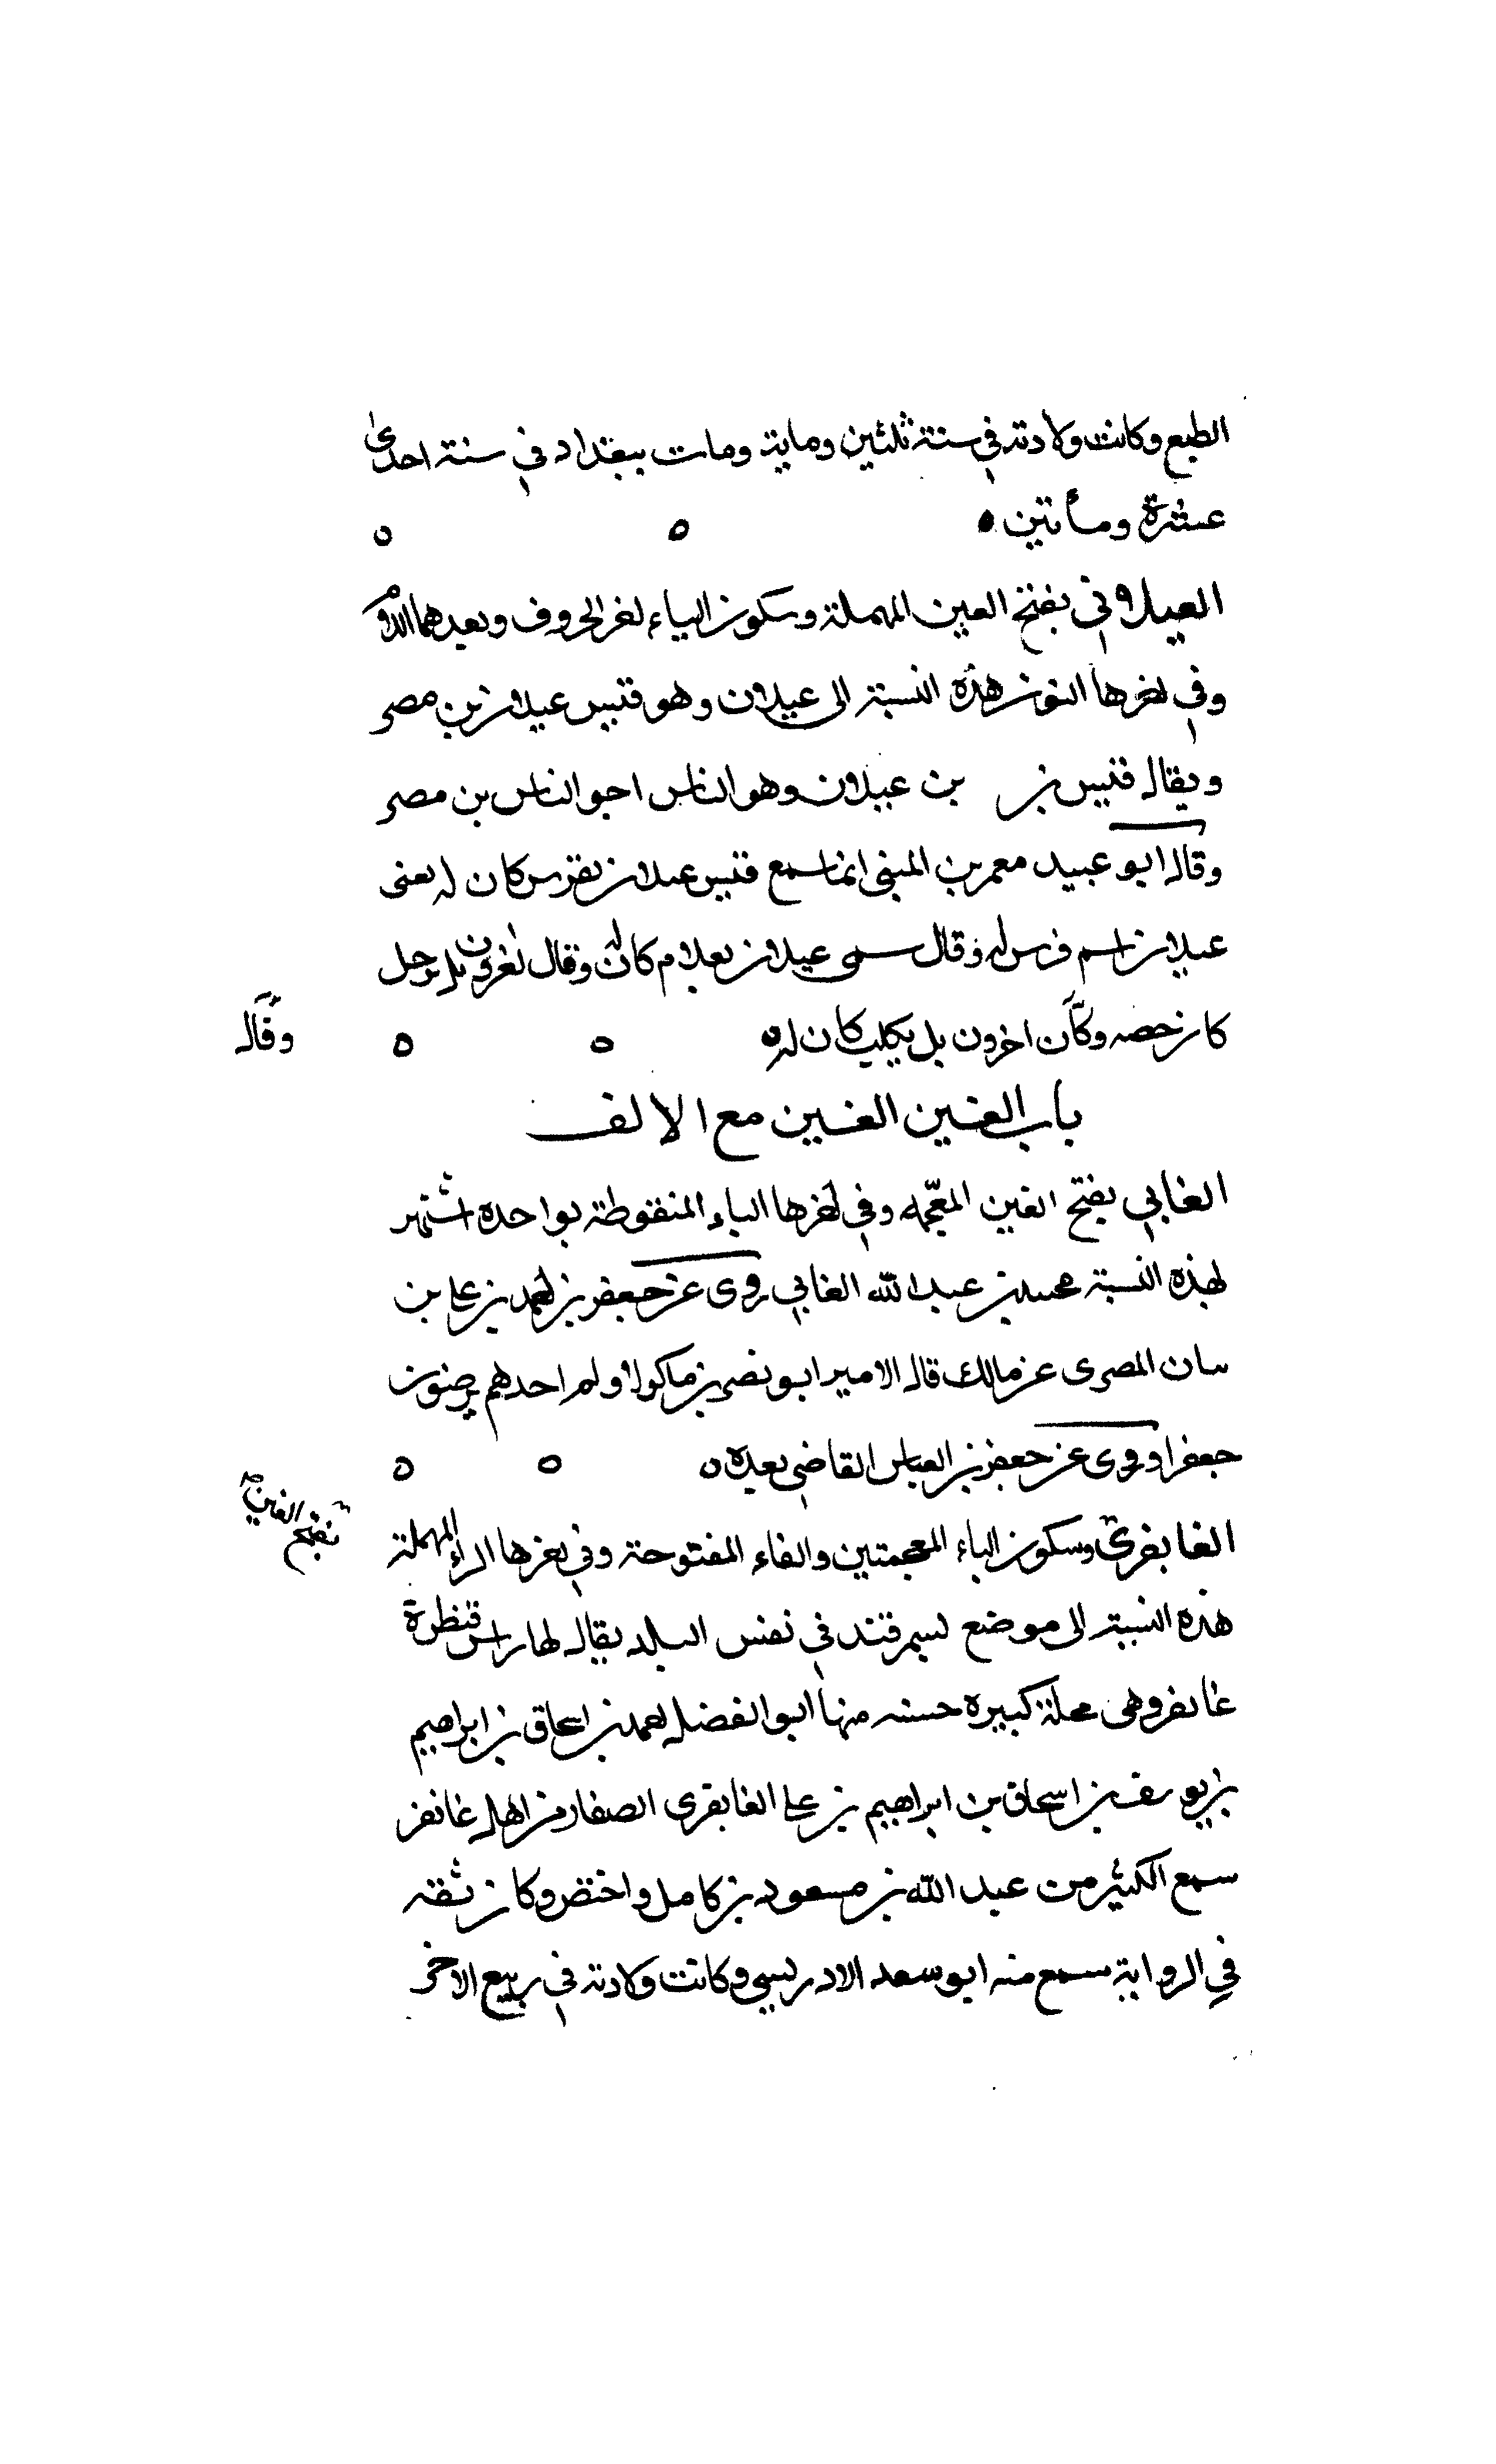 الطبع وكانت ولادته في سنة ثلثين وماية ومات ببغداد في سنة احدى
عشرة ومأتين
العيلاني بفتح العين المهملة وسكون الياء اخر الحروف وبعدهما اللام
وفي اخرها النون هذه النسبة الى عيلان وهو قيس عيلان بن مصر
ويقال قيس بن بن عيلان وهو الناس اخو الناس بن مصر
وقال ابو عبيد معمر بن المبنى انما سمع قيس عيلان بفرس كان له يعنى
عيلان اسم فرس له وقال سمى عيلان بغلام كان له وقال اخرون بل برجل
كان حصه وكان اخرون بل بكلب كان له
وقال
باب الغين الغين مع الالف
الغابي بفتح الغين المعجمه وفي اخرها الباء المنقوطة بواحده اشتهر
لهذه النسبة محمد بن عبد الله الغابي روى عن جعفر بن احمد بن علي بن
سان المصرى عن مالك قاله الامير ابو نصر بن ماكولا ولم احدهم يرضون
جعفرا وروى عن جعفر بن العباس القاضي بعده
الغابفرى وسكون الباء المعجمتين والفاء المفتوحة وفي اخرها الراء المهملة
بفتح الغين
هذه النسبة الى موضع لسمرقند في نفس البلد يقال لها راس قنطرة
غانفر وهى محلة كبيره حسنه منها ابو الفضل احمد بن اسحاق بن ابراهيم
بن يوسف بن اسحاق بن ابراهيم بن علي الغابفرى الصفار من اهل غانفر
سمع الكثير من عبد الله بن مسعود بن كامل واختص وكان ثقه
في الرواية سمع منه ابو سعد الادريسي وكانت ولادته في ربيع الاخر